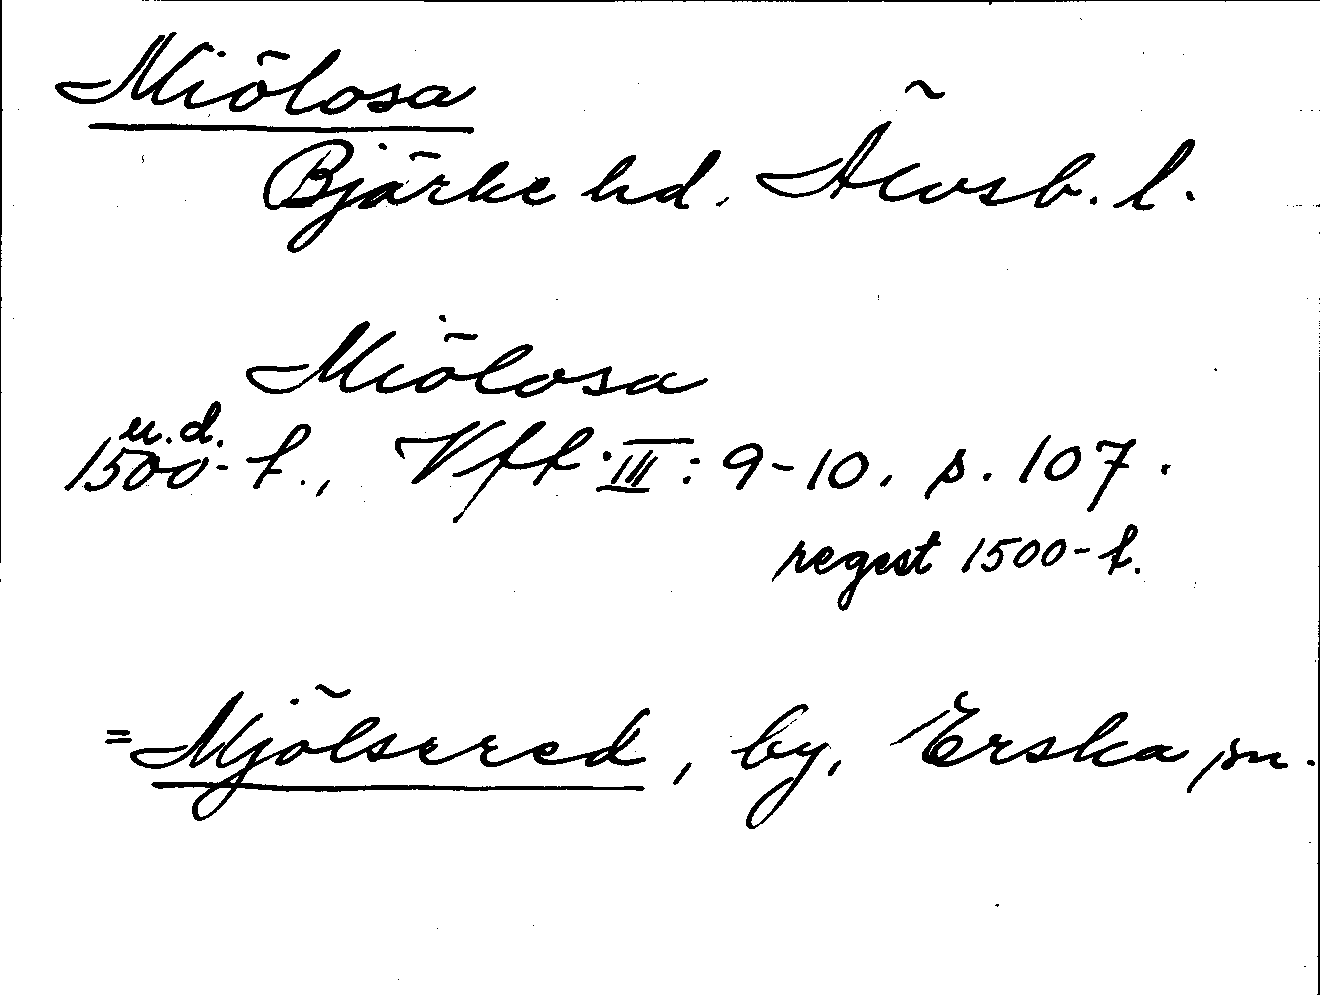 Miölosa
Bjärke hd. Älvsb. l.
Miölosa
u.d.
1500-t., Vff III: 9-10. s. 107.
regest 1500-t.
= Mjölsered, by, Erska sn.